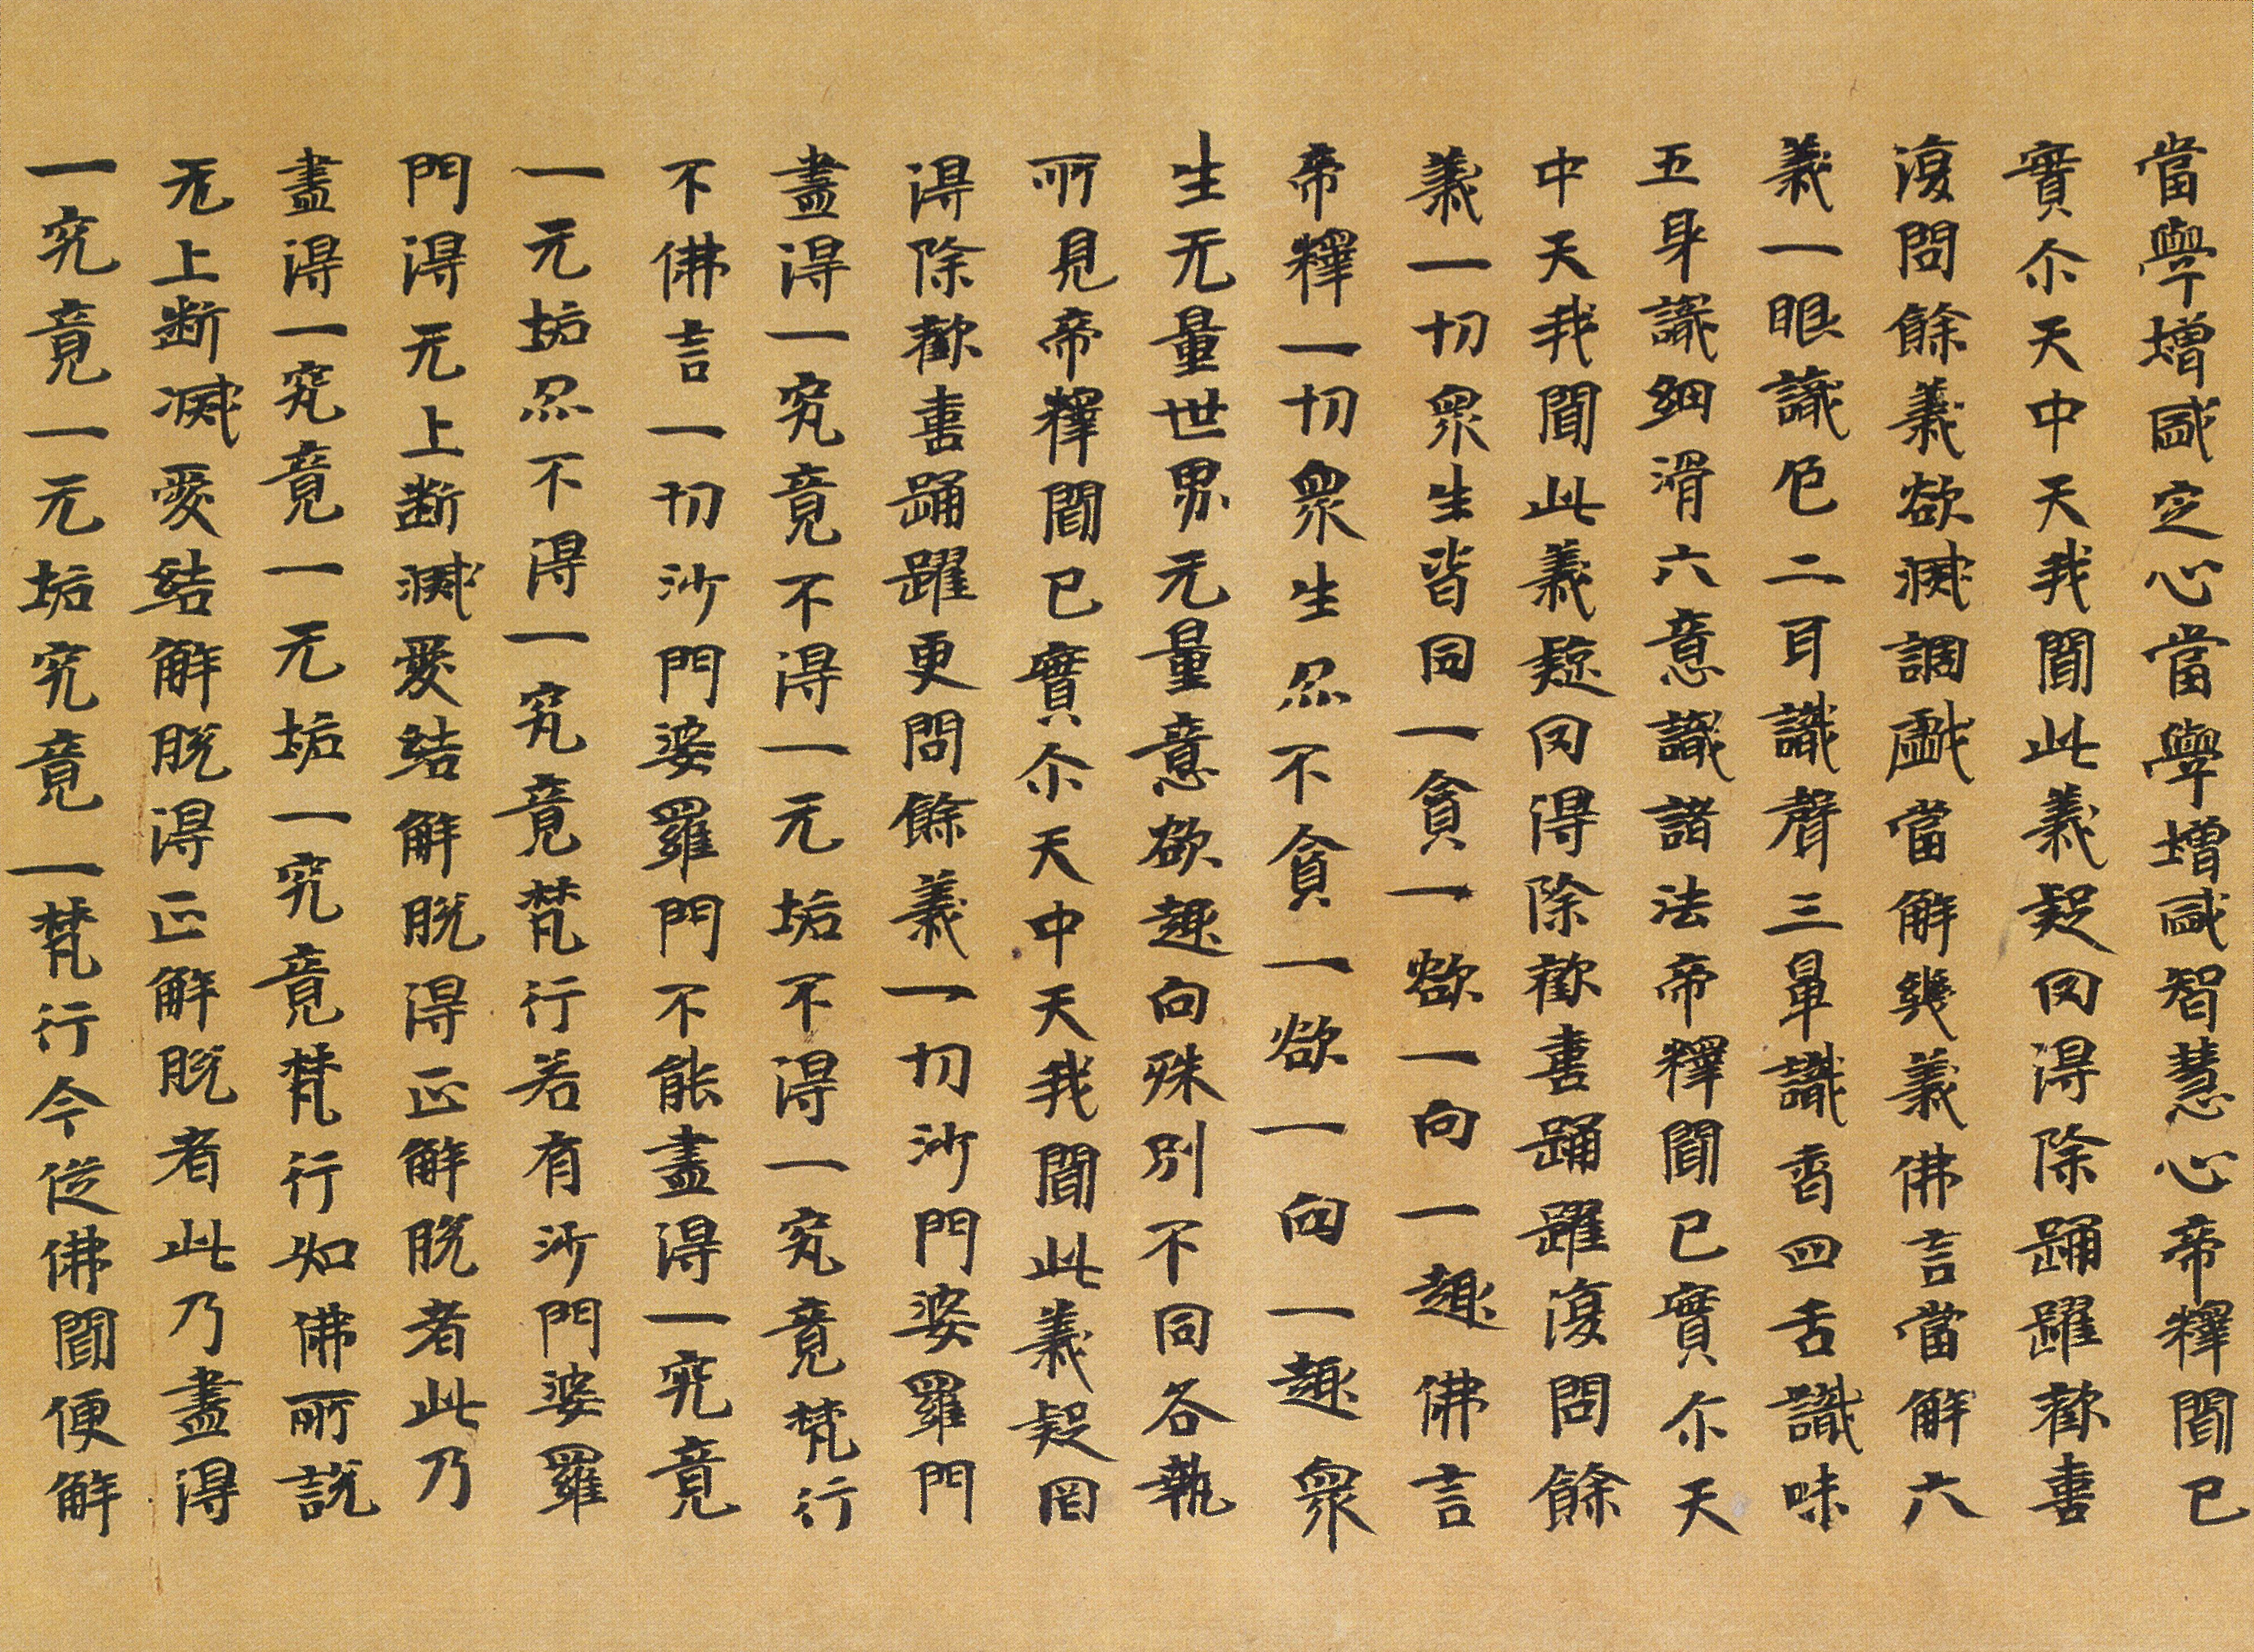 當學增感定心當學增感智慧心帝釋聞已
實尒天中天我聞此義疑罔得除踊躍歡喜
復問餘義欲滅調戲當解幾義佛言當解六
義一眼識色二耳識聲三鼻識香四舌識味
五身識細滑六意識諸法帝釋聞已實尒天
中天我聞此義疑罔得除歡喜踊躍復問餘
義一切衆生皆同一貪一欲一向一趣佛言
帝釋一切衆生忍不貪一欲一向一趣衆
生无量世界无量意欲趣向殊別不同各執
所見帝釋聞已實尒天中天我聞此義疑罔
得除歡喜踊躍更問餘義一切沙門婆羅門
盡得一究竟不得一无垢不得一究竟梵行
不佛言一切沙門婆羅門不能盡得一究竟
一无垢忍不得一究竟梵行若有沙門婆羅
門得无上断滅愛結解脫得正解脫者此乃
盡得一究竟一无垢一究竟梵行如佛所說
无上断滅愛結解脫得正解脫者此乃盡得
一究竟一无垢究竟一梵行今從佛聞便解